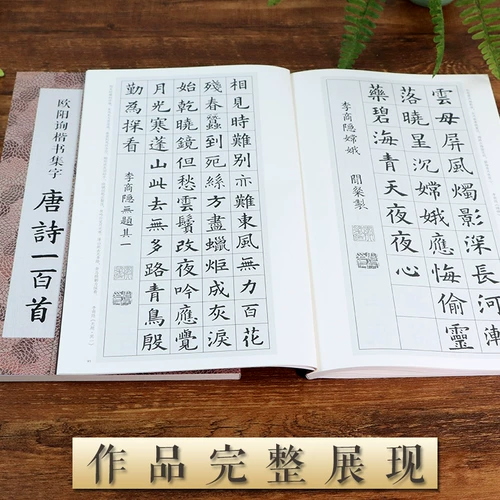 欧阳询楷书集字
唐詩一百首
雲母屏風燭影深長河漸
落曉星沉嫦娥應悔偷靈
藥碧海青天夜夜心
李商隐嫦娥
相見時難別亦難東風無力百花
殘春蠶到死絲方盡蠟炬成灰淚
始乾曉鏡但愁雲鬢改夜吟應覺
月光寒蓬山此去無多路青鳥殷
勤為探看
李商隐無題其一
作品完整展现